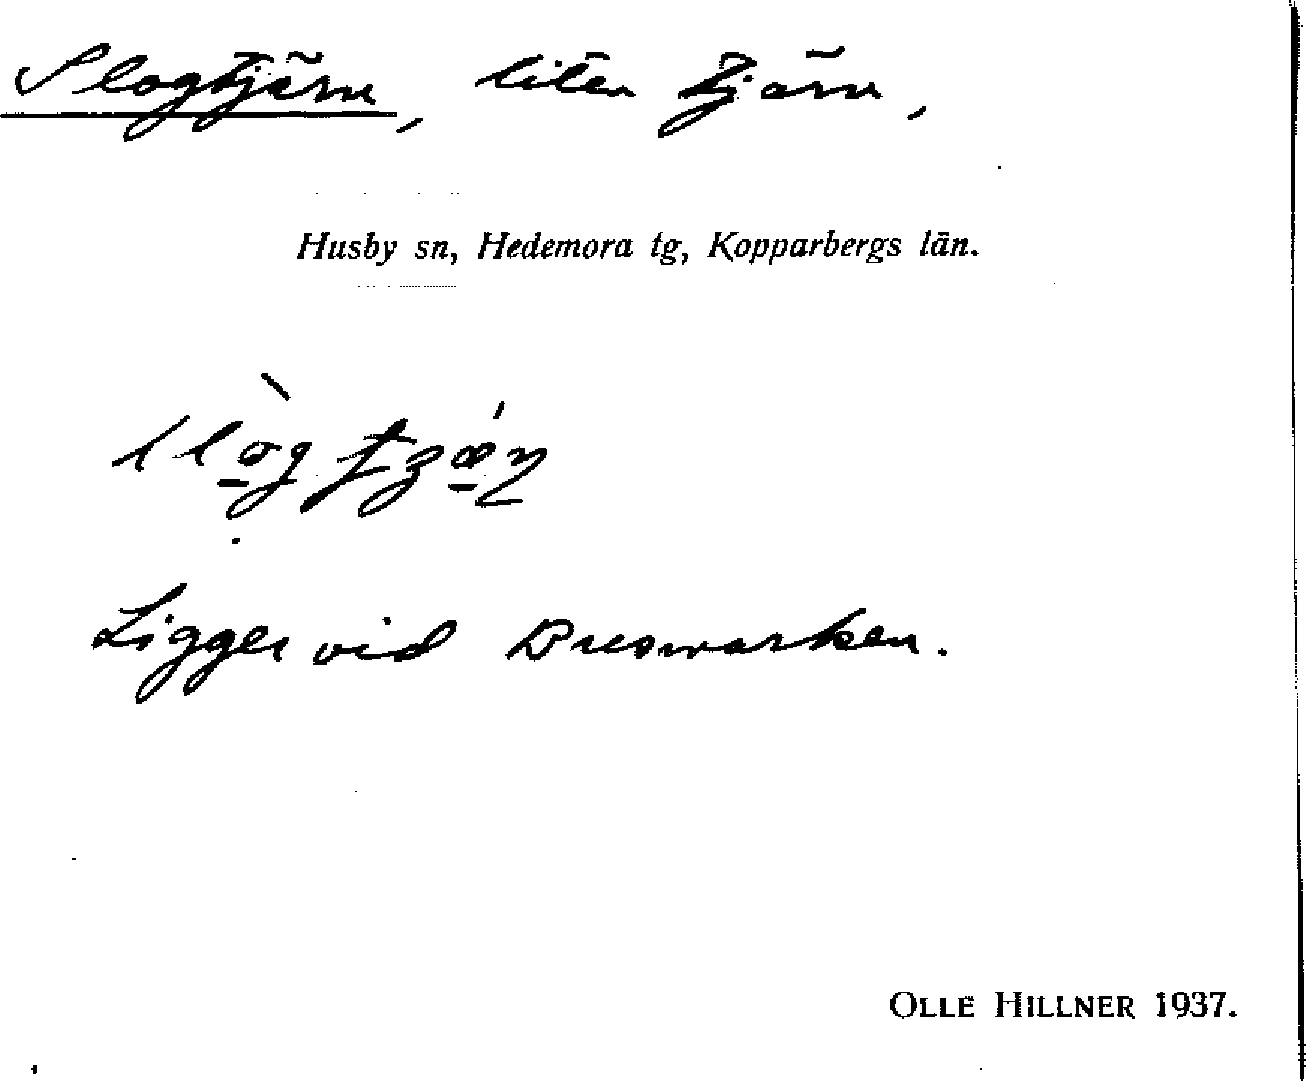 Slogtjärn, liten tjärn,
Husby sn, Hedemora tg, Kopparbergs län.
Ligger vid
OLLE HILLNER 1937.